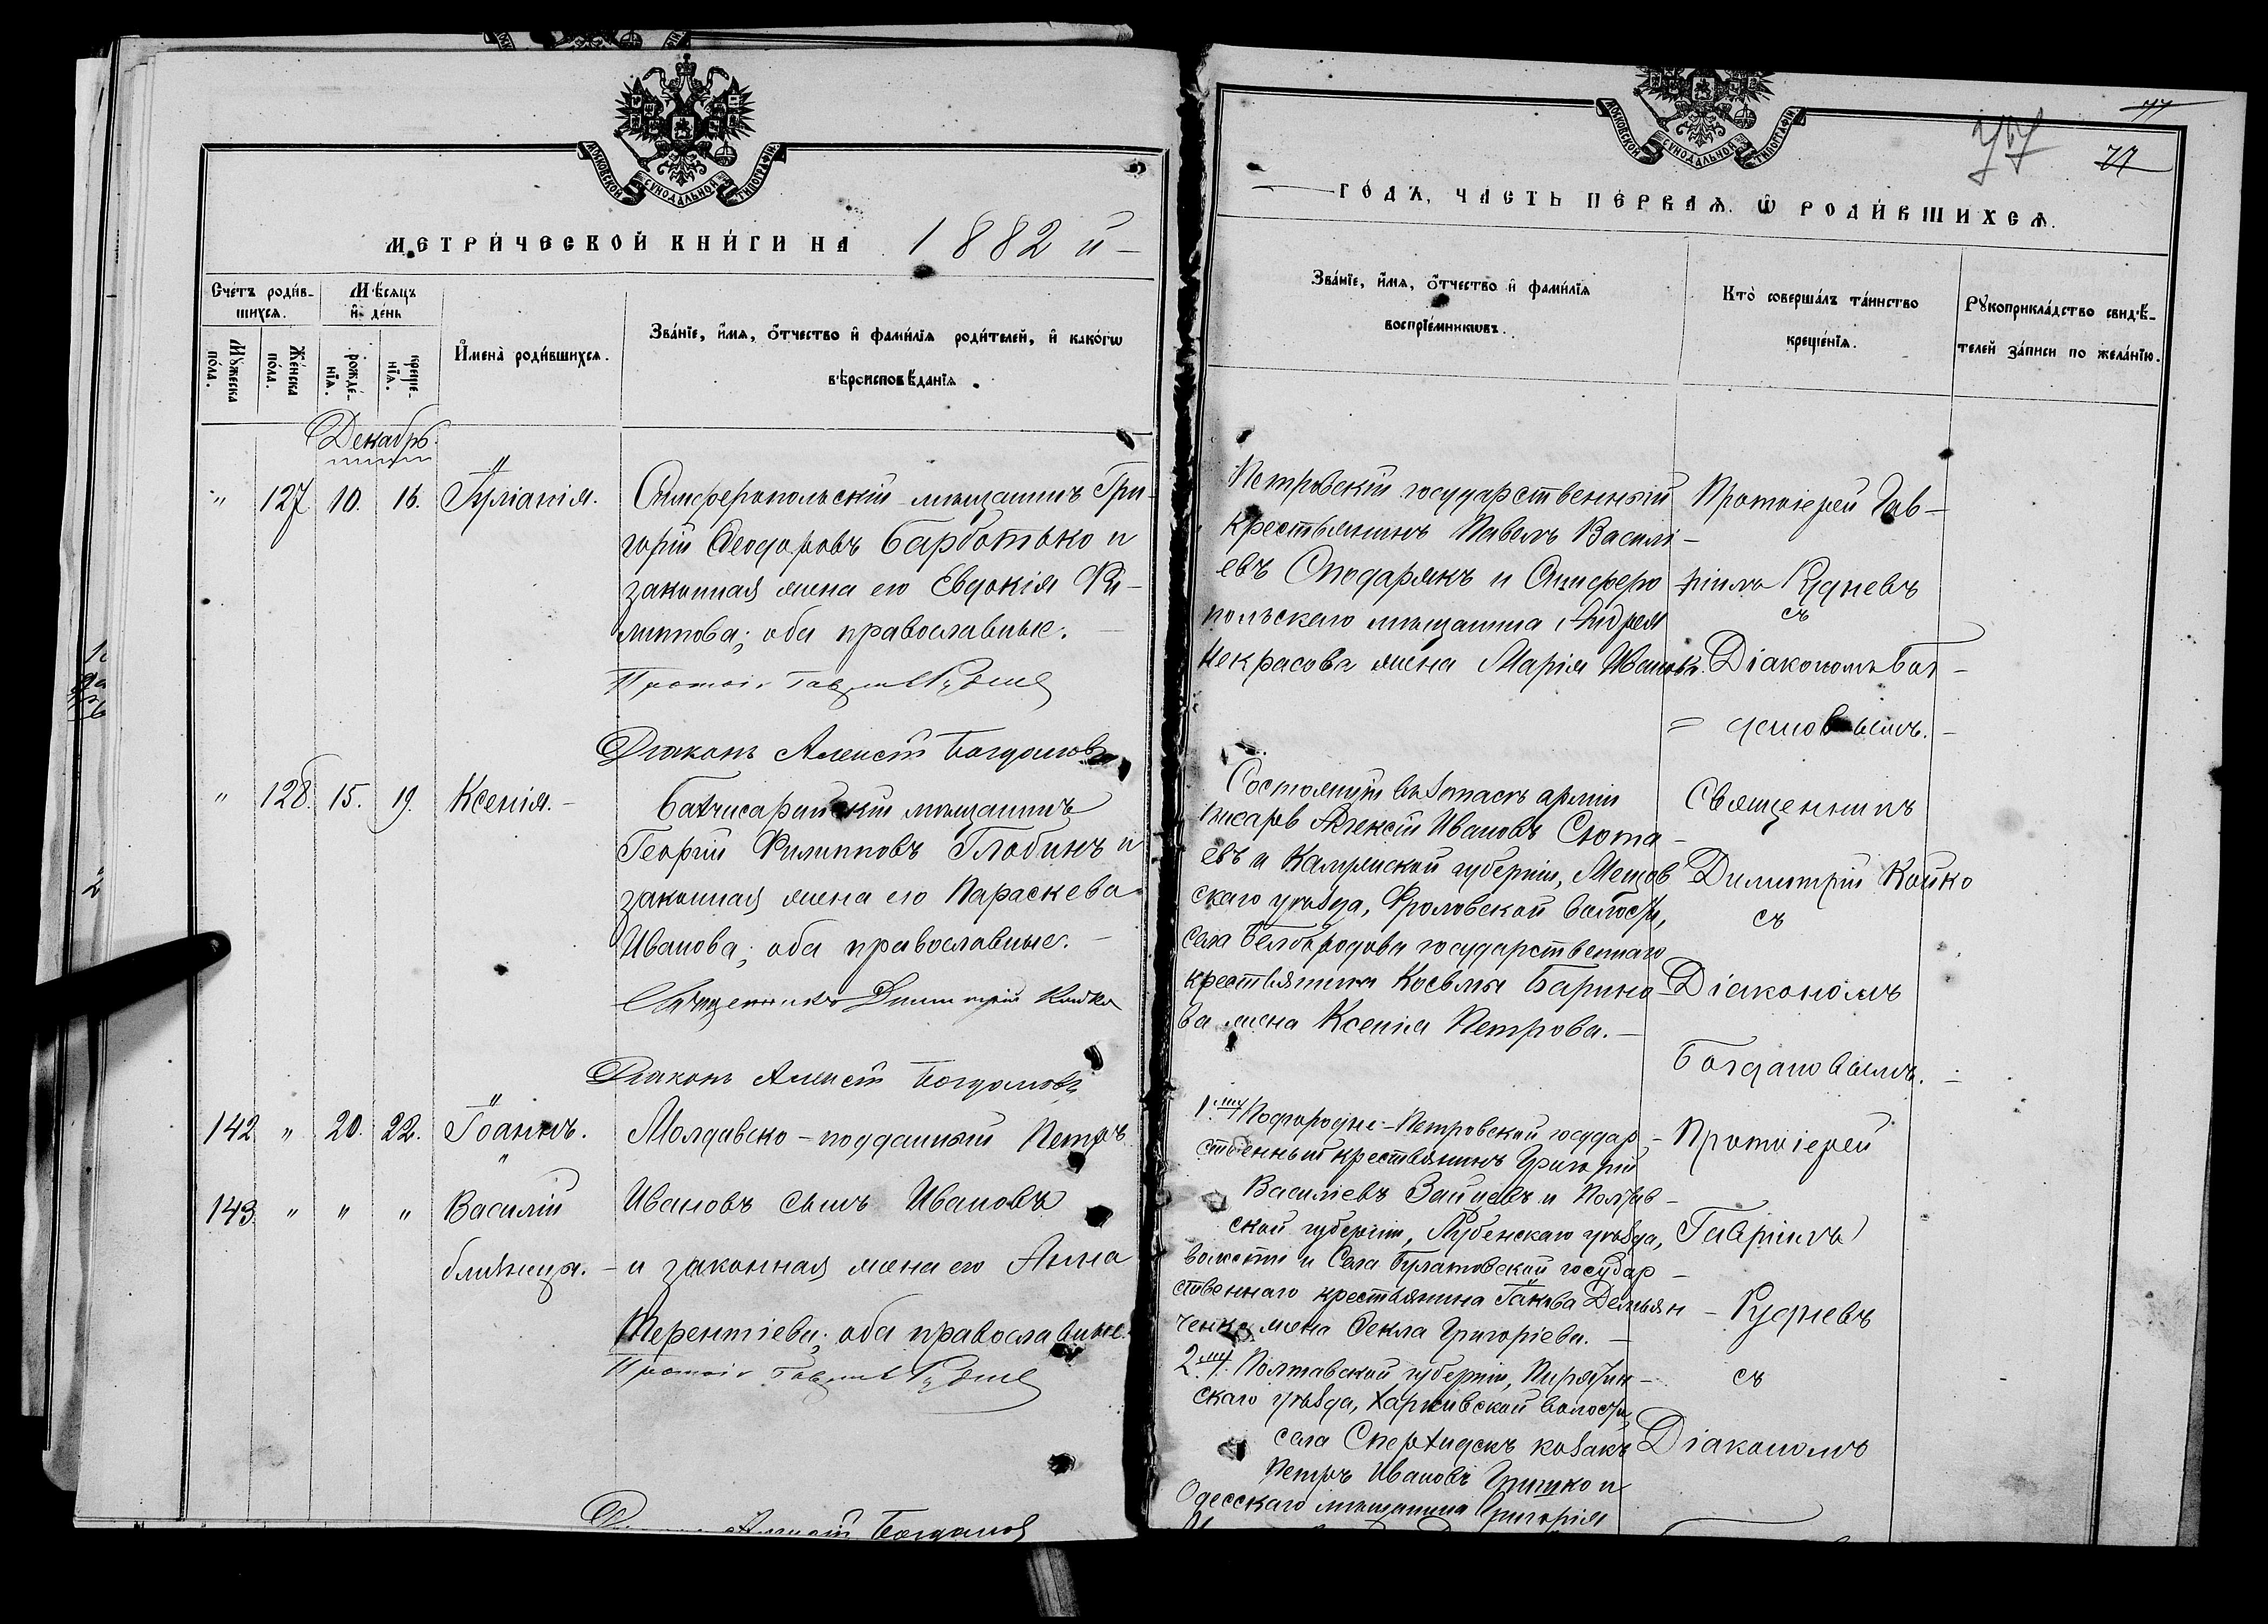 МОСКОВСКОЙ СѴНОДАЛЬНОЙ ТИПОГРАФІИ
МЕТРИ́ЧЕСКОЙ КНИ́ГИ НА 1882 й
Сче́тъ роди́в-
шихсѧ.
Мꙋ́жеска
по́ла.
Же́нска
по́ла.
Мѣ́сѧцъ
и҆ де́нь
рожде́-
нїѧ.
креще́-
нїѧ.
И҆мена̀ роди́вшихсѧ.
Зва́нїе, и҆́мѧ, ѻ҆́тчество и҆ фами́лїѧ роди́телей, и҆ како́гѡ
вѣроисповѣ́данїѧ.
Декабрь.
" 127 10. 16. Іуліанія.
Симферопольскій мѣщанинъ Гри-
горій Ѳеодоровъ Барботько и
законная жена его Евдокія Фи-
липпова; оба православные.
Протоі. Гавріилъ Рудневъ
Діаконъ Алексій Богдановъ
" 128. 15. 19. Ксенія.
Бахчисарайскій мѣщанинъ
Георгій Филипповъ Глобинъ и
законная жена его Параскева
Иванова; оба православные.
Священникъ Димитрій Койко
Діаконъ Алексій Богдановъ
142 " 20. 22. Іоаннъ.
143 " " " Василій
близнецы.
Молдавско-подданный Петръ
Ивановъ сынъ Ивановъ
и законная жена его Анна
Терентіева; оба православные.
Протоі. Гавріилъ Рудневъ
Діаконъ Алексій Богдановъ
МОСКОВСКОЙ СѴНОДАЛЬНОЙ ТИПОГРАФІИ
77
ГО́ДЪ, ЧА́СТЬ ПЕ́РВАѦ, Ѽ РОДИ́ВШИХСѦ.
Зва́нїе, и҆́мѧ, ѻ҆́тчество и҆ фами́лїѧ
воспрїе́мникѡвъ.
Кто̀ соверша́лъ та́инство
креще́нїѧ.
Рꙋкоприкла́дство свидѣ́-
телей за́писи по жела́нїю.
Петровскій государственный
крестьянинъ Павелъ Василі-
евъ Сподарякъ и Симферо
польскаго мѣщанина Андрея
Некрасова жена Марія Иванова.
Протоіерей Гав-
ріилъ Рудневъ
съ
Діакономъ Бог-
= дановымъ.
Состоящій въ запасѣ арміи
писарь Алексій Ивановъ Сюта-
евъ и Калужской губерніи, Мещов
скаго уѣзда, Фроловской волости,
села Белбородова государственнаго
крестьянина Косьмы Барино-
ва жена Ксенія Петрова.
Священникъ
Димитрій Койко
съ
Діакономъ
Богдановымъ.
1.му Подгородне-Петровской государ-
ственный крестьянинъ Григорій
Василіевъ Зайцевъ и Полтав-
ской губерніи, Лубенскаго уѣзда,
волости и Села Булатовской государ-
ственнаго крестьянина Іакова Демьян-
ченко жена Ѳекла Григоріева.
2.му. Полтавской губерніи, Пирятин-
скаго уѣзда, Харковской волости,
села козакъ
Петръ Ивановъ Гришко и
Одесскаго мѣщанина Григорія
Протоіерей
Гавріилъ
Рудневъ
съ
Діакономъ